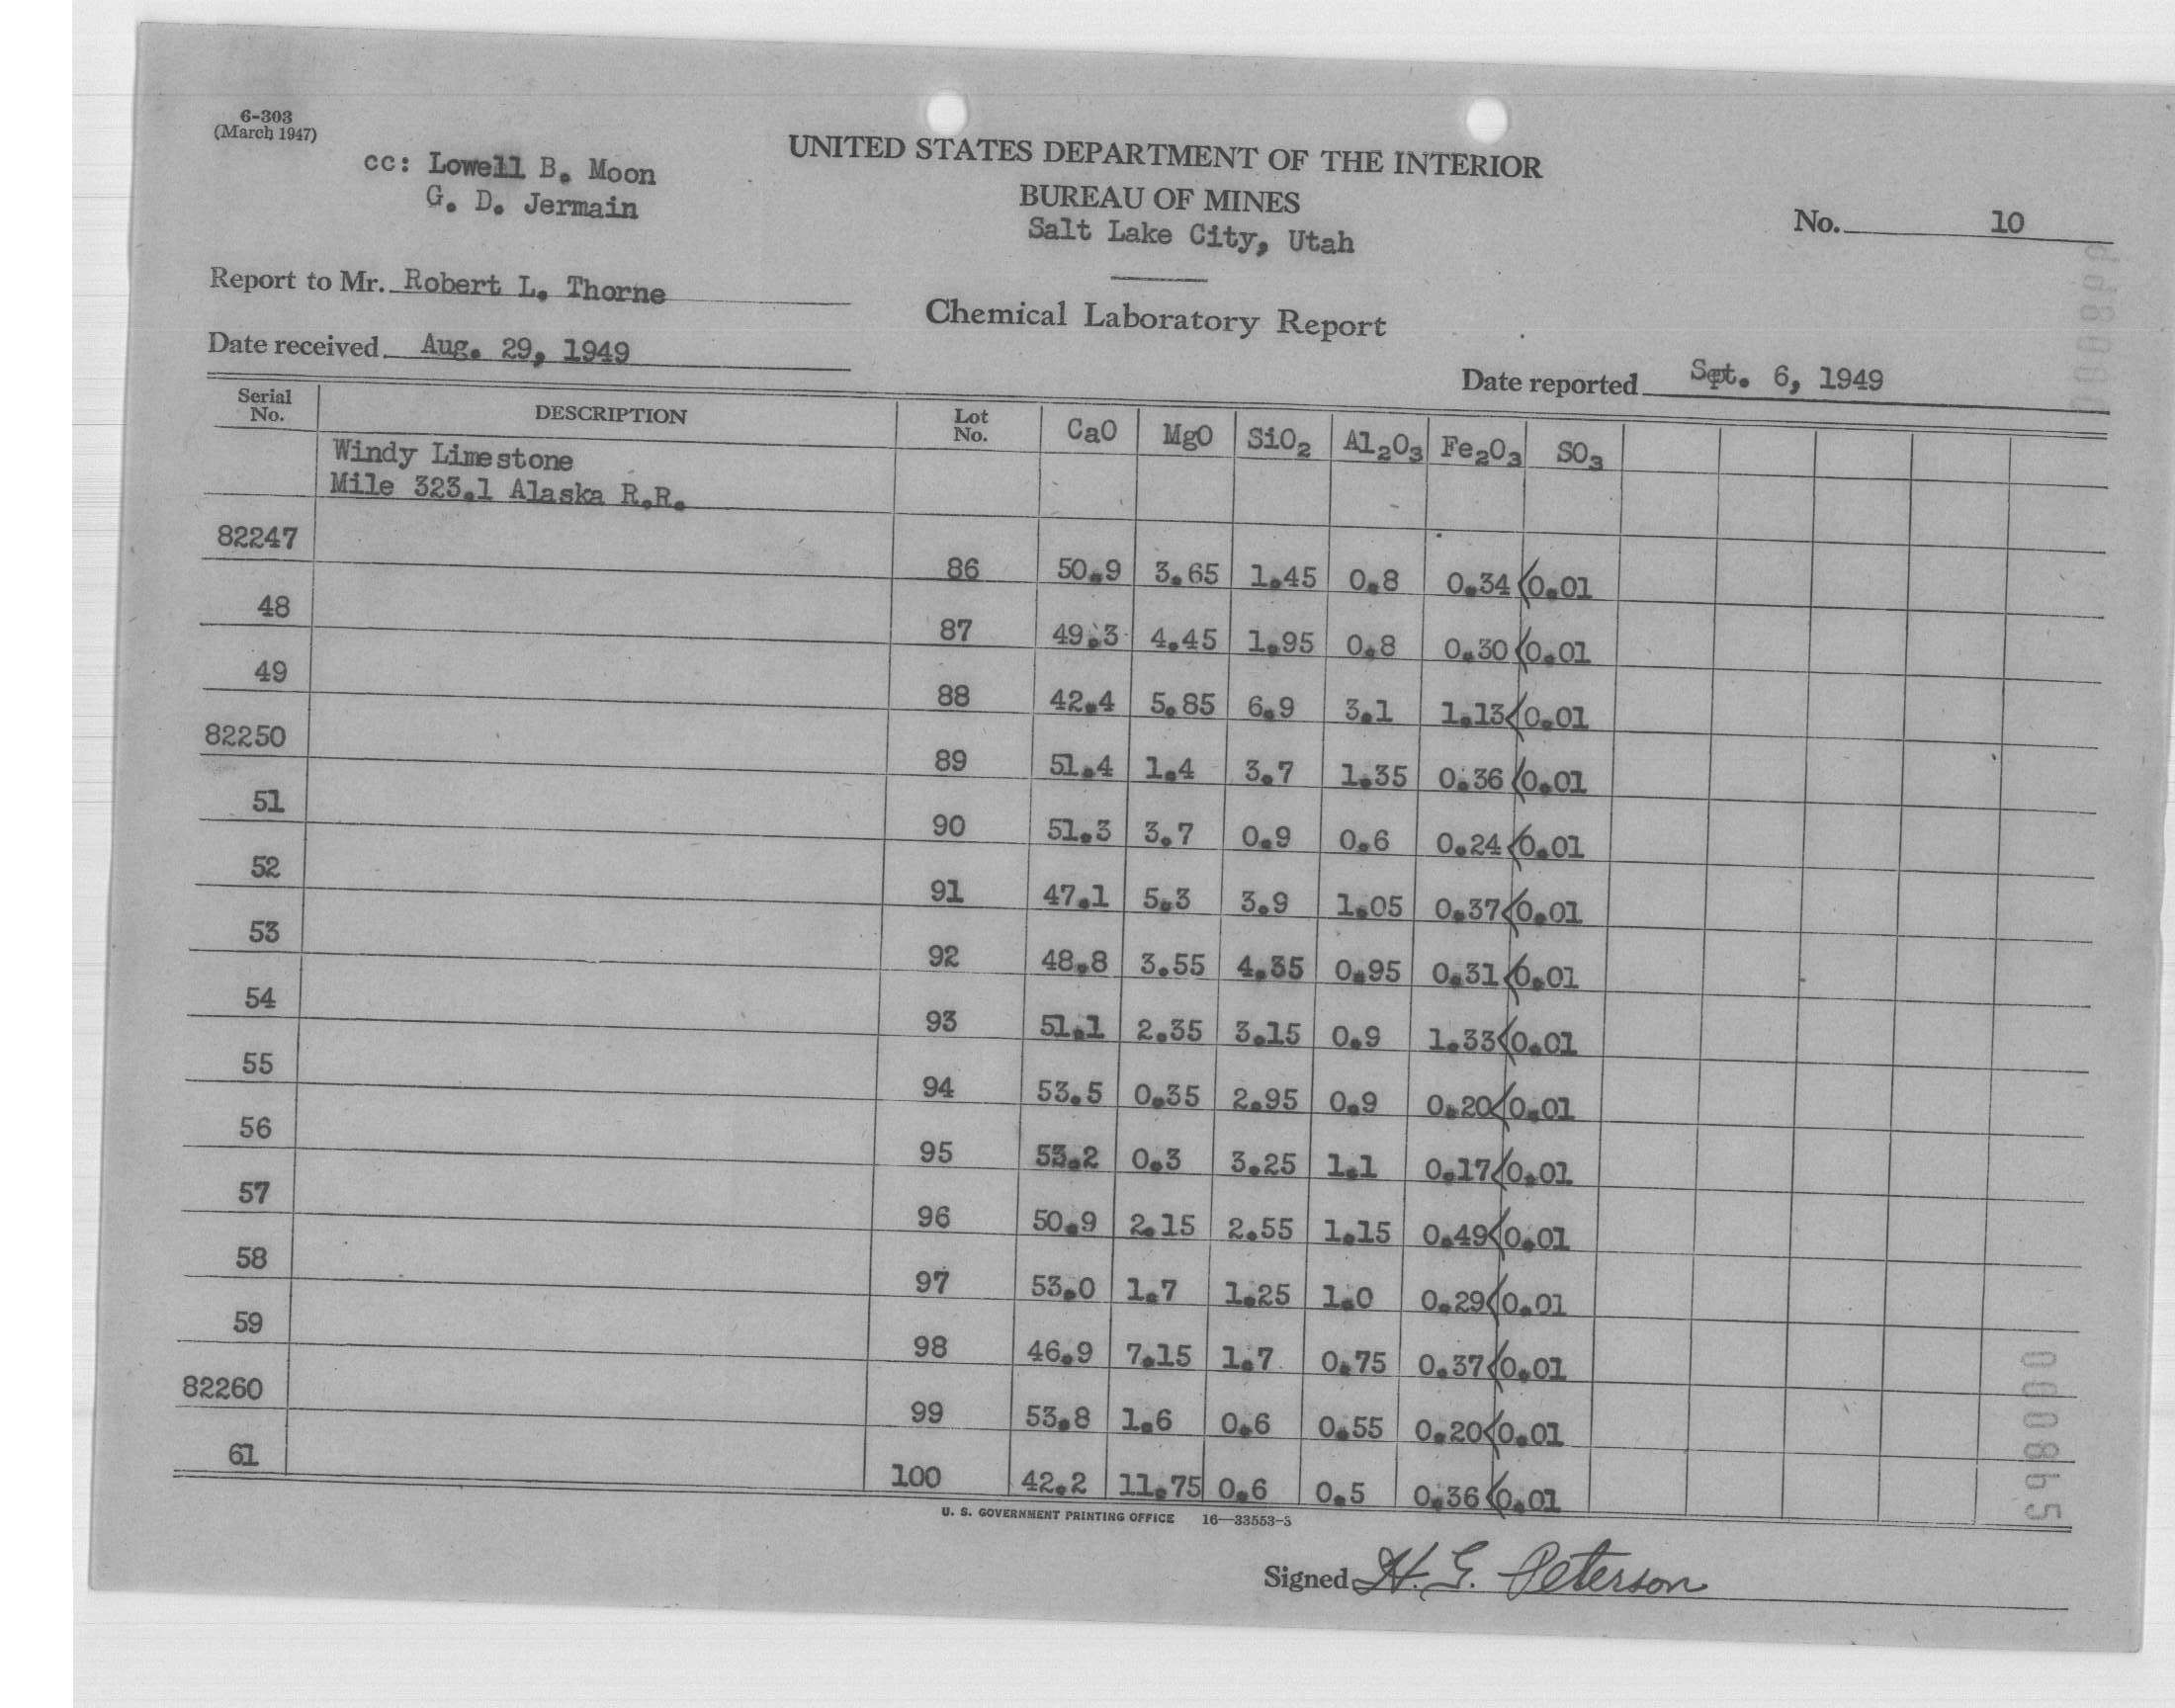 6-303
(March 1947)
cc: Lowell B. Moon
G. D. Jermain
UNITED STATES DEPARTMENT OF THE INTERIOR
BUREAU OF MINES
Salt Lake City, Utah
No. 10
Report to Mr. Robert L. Thorne
Chemical Laboratory Report
Date received Aug. 29, 1949
Date reported Sept. 6, 1949
Serial No. DESCRIPTION Lot No. CaO MgO SiO2 Al2O3 Fe2O3 SO3
Windy Limestone
Mile 323.1 Alaska R.R.
82247 86 50.9 3.65 1.45 0.8 0.34 <0.01
48 87 49.3 4.45 1.95 0.8 0.30 <0.01
49 88 42.4 5.85 6.9 3.1 1.13 <0.01
82250 89 51.4 1.4 3.7 1.35 0.36 <0.01
51 90 51.3 3.7 0.9 0.6 0.24 <0.01
52 91 47.1 5.3 3.9 1.05 0.37 <0.01
53 92 48.8 3.55 4.35 0.95 0.31 <0.01
54 93 51.1 2.35 3.15 0.9 1.33 <0.01
55 94 53.5 0.35 2.95 0.9 0.20 <0.01
56 95 53.2 0.3 3.25 1.1 0.17 <0.01
57 96 50.9 2.15 2.55 1.15 0.49 <0.01
58 97 53.0 1.7 1.25 1.0 0.29 <0.01
59 98 46.9 7.15 1.7 0.75 0.37 <0.01
82260 99 53.8 1.6 0.6 0.55 0.20 <0.01
61 100 42.2 11.75 0.6 0.5 0.36 <0.01
U. S. GOVERNMENT PRINTING OFFICE 16—33553-5
Signed H. G. Peterson